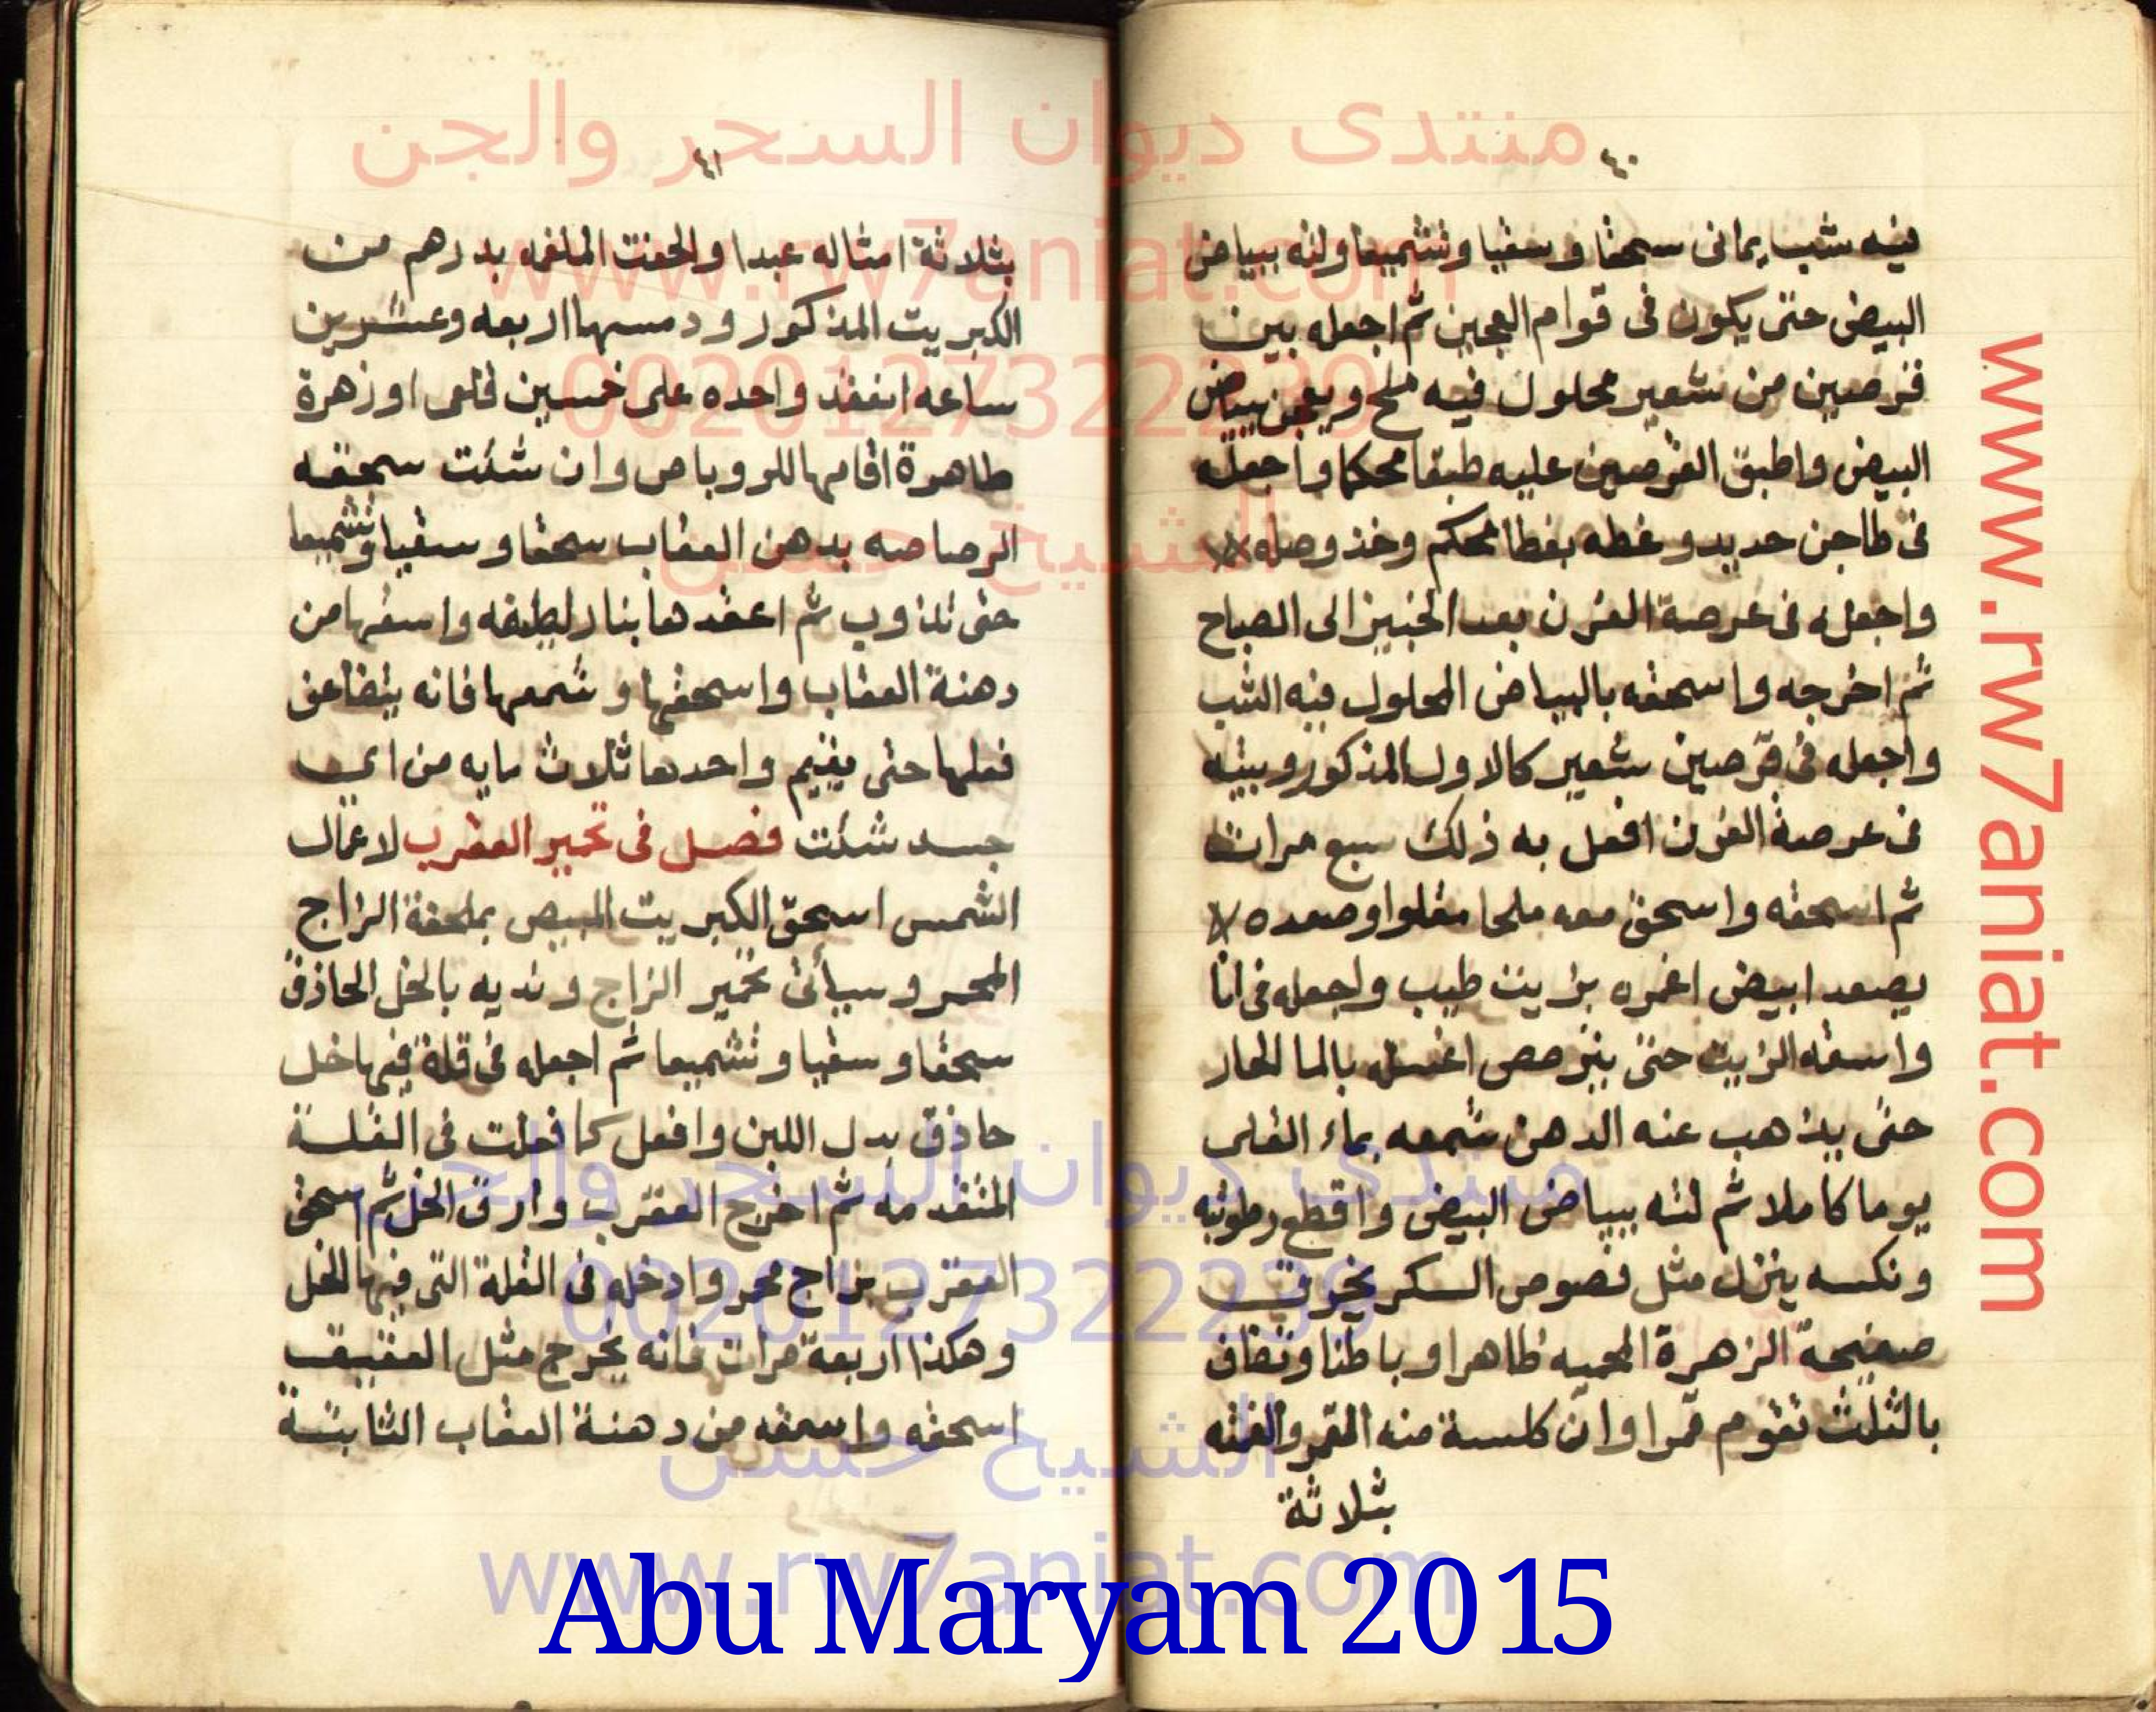 ٤٠
فيه شب يمانى سحقا وسقيا وتشميعا ولته ببياض
البيض حتى يكون فى قوام العجين ثم اجعله بين
قرصين من شعير محلول فيه ملح ويعجن ببياض
البيض واطبق القرصين عليه طبقا محكما واجعله
فى طاجن حديد وغطه بغطا محكم وخذ وصله
واجعله فى عرصة الفرن بعد الخبيز الى الصباح
ثم اخرجه واسحقه بالبياض المحلول فيه الشب
واجعله فى قرصين شعير كالاول المذكور وبيته
فى عرصة الفرن افعل به ذلك سبع مرات
ثم اسحقه واسحق معه ملحا مقلوا وصعده
يصعد ابيض اغمره بزيت طيب واجعله فى انا
واسقه الزيت حتى يترصص اغسله بالما الحار
حتى يذهب عنه الدهن شمعه بماء القلى
يوما كاملا ثم لته ببياض البيض واقطع رطوبته
ونكسه ينزل مثل فصوص السكر يخرق
صفيحة الزهرة المحميه ظاهرا وباطنا وتضاف
بالثلث تقوم قمرا وان كلسة منه القمر والفته
بثلاثة
٤١
بثلاثة امثاله عبدا والحقت الملغمه بدرهم من
الكبريت المذكور ودمسها اربعه وعشرين
ساعه انعقد واحده على خمسين قلعى او زهرة
طاهرة اقامها للروباص وان شئت سحقه
الرصاصه بدهن العقاب سحقا وسقيا وتشميعا
حتى تذوب ثم اعقدها بنار لطيفه واسقها من
دهنة العقاب واسحقها وشمعها فانه يتضاعف
فعلها حتى يقيم واحدها ثلاث مايه من اى
جسد شئت فصل فى تحمير العقرب لاعمال
الشمس اسحق الكبريت المبيض بملحقة الزاج
المحمر وسيأتى تحمير الزاج ونديه بالخل الحاذق
سحقا وسقيا وتشميعا ثم اجعله فى قلة فيها خل
حاذق بدل اللبن وافعل كما فعلت فى القلة
المتقدمه ثم اخرج العقرب وارق الخل ثم اسحق
العقرب بزاج محمر وادخله فى القلة التى فيها الخل
وهكذا اربعة مرات فانه يخرج مثل العقيق
اسحقه واسقه من دهنة العقاب الثابتة
منتدى ديوان السحر والجن
www.rw7aniat.com
00201273222239
الشيخ حسن
www.rw7aniat.com
منتدى ديوان السحر والجن
00201273222239
الشيخ حسن
www.rw7aniat.com
Abu Maryam 2015